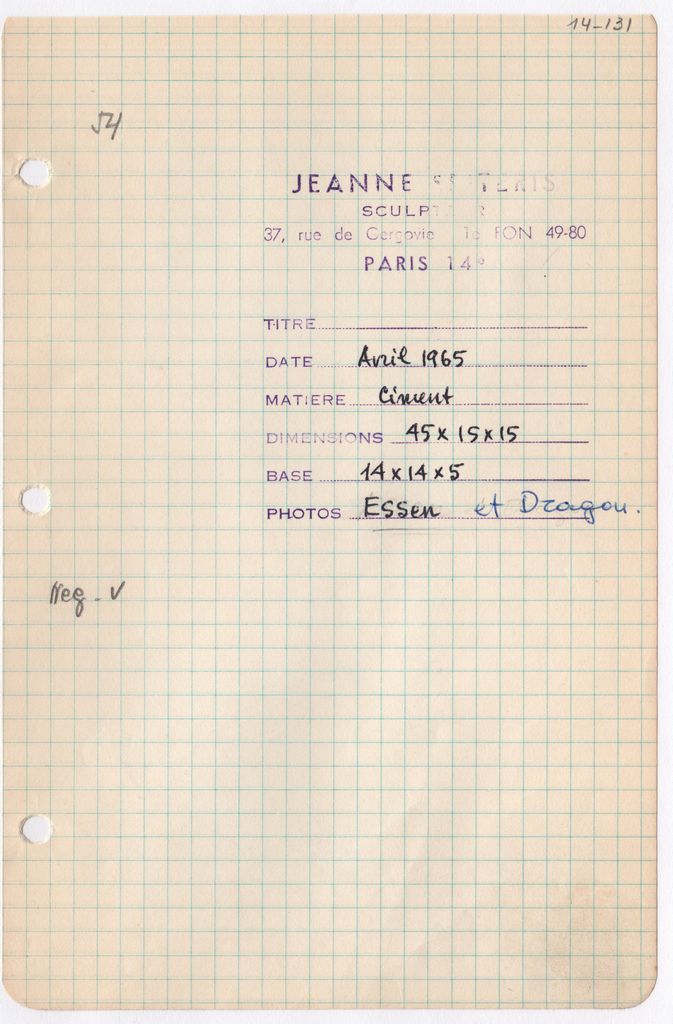 14-131
54
JEANNE
SCULPT R
37, rue de Gergovie Té FON 49-80
PARIS 14e
TITRE
DATE Avril 1965
MATIERE Ciment
DIMENSIONS 45 x 15 x 15
BASE 14 x 14 x 5
PHOTOS Essen et Dragon.
Neg - V